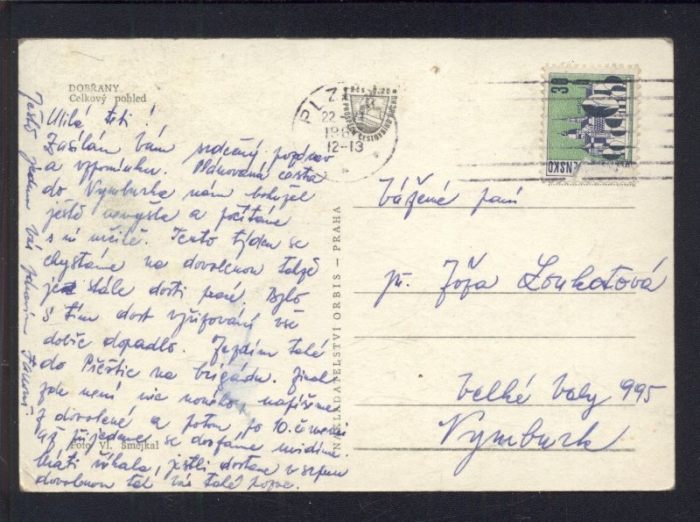 DOBŘANY
Celkový pohled
Milá teti!
Zasílám Vám srdečný pozdrav
a vzpomínku. Plánovaná cesta
do Nymburka nám bohužel
ještě nevyšla a počítáme
s ní určitě. Tento týden se
chystáme na dovolenou takže
je stále dosti práce. Bylo
s tím dost vyřizování vše
dobře dopadlo. Jezdím také
do Přeštic na brigádu. Jinak
zde není nic nového napíšeme
z dovolené a potom po 10.
až přijedeme se
říkala, jestli dostane v srpnu
dovolenou tak Vás také
Ještě jednou Vás zdravím
Foto Vl. Smejkal
NAKLADATELSTVÍ ORBIS – PRAHA
PLZ
22
196
12-13
30
ENSKO
Vážené paní
pí. Jóža Loukotová
Velké Valy 995
Nymburk